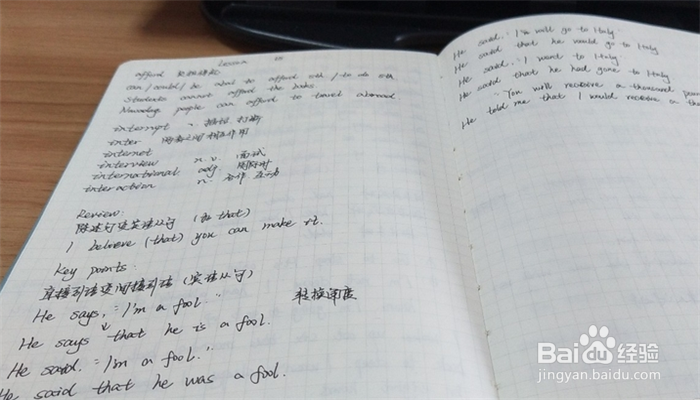 Lesson
afford 买得起
can / could / be able to afford sth / to do sth
Students cannot afford the books.
Nowadays people can afford to travel abroad.
interrupt v. 插话, 打断
inter- 两者之间 相互作用
internet
interview n. v. 面试
international adj. 国际的
interaction n. 合作 互动
Review:
陈述句变宾语从句 (用 that)
I believe (that) you can make it.
Key points:
直接引语变间接引语 (宾语从句)
He says, "I'm a fool." 轻按闸瓦
He says that he is a fool.
He said: "I'm a fool."
He said that he was a fool.
He said: "I will go to Italy
He said that he would go to Italy
He said: "I went to Italy
He said that he had gone to Italy
"You will receive a thousand
He told me that I would receive a
Baidu 经验
jingyan.baidu.com